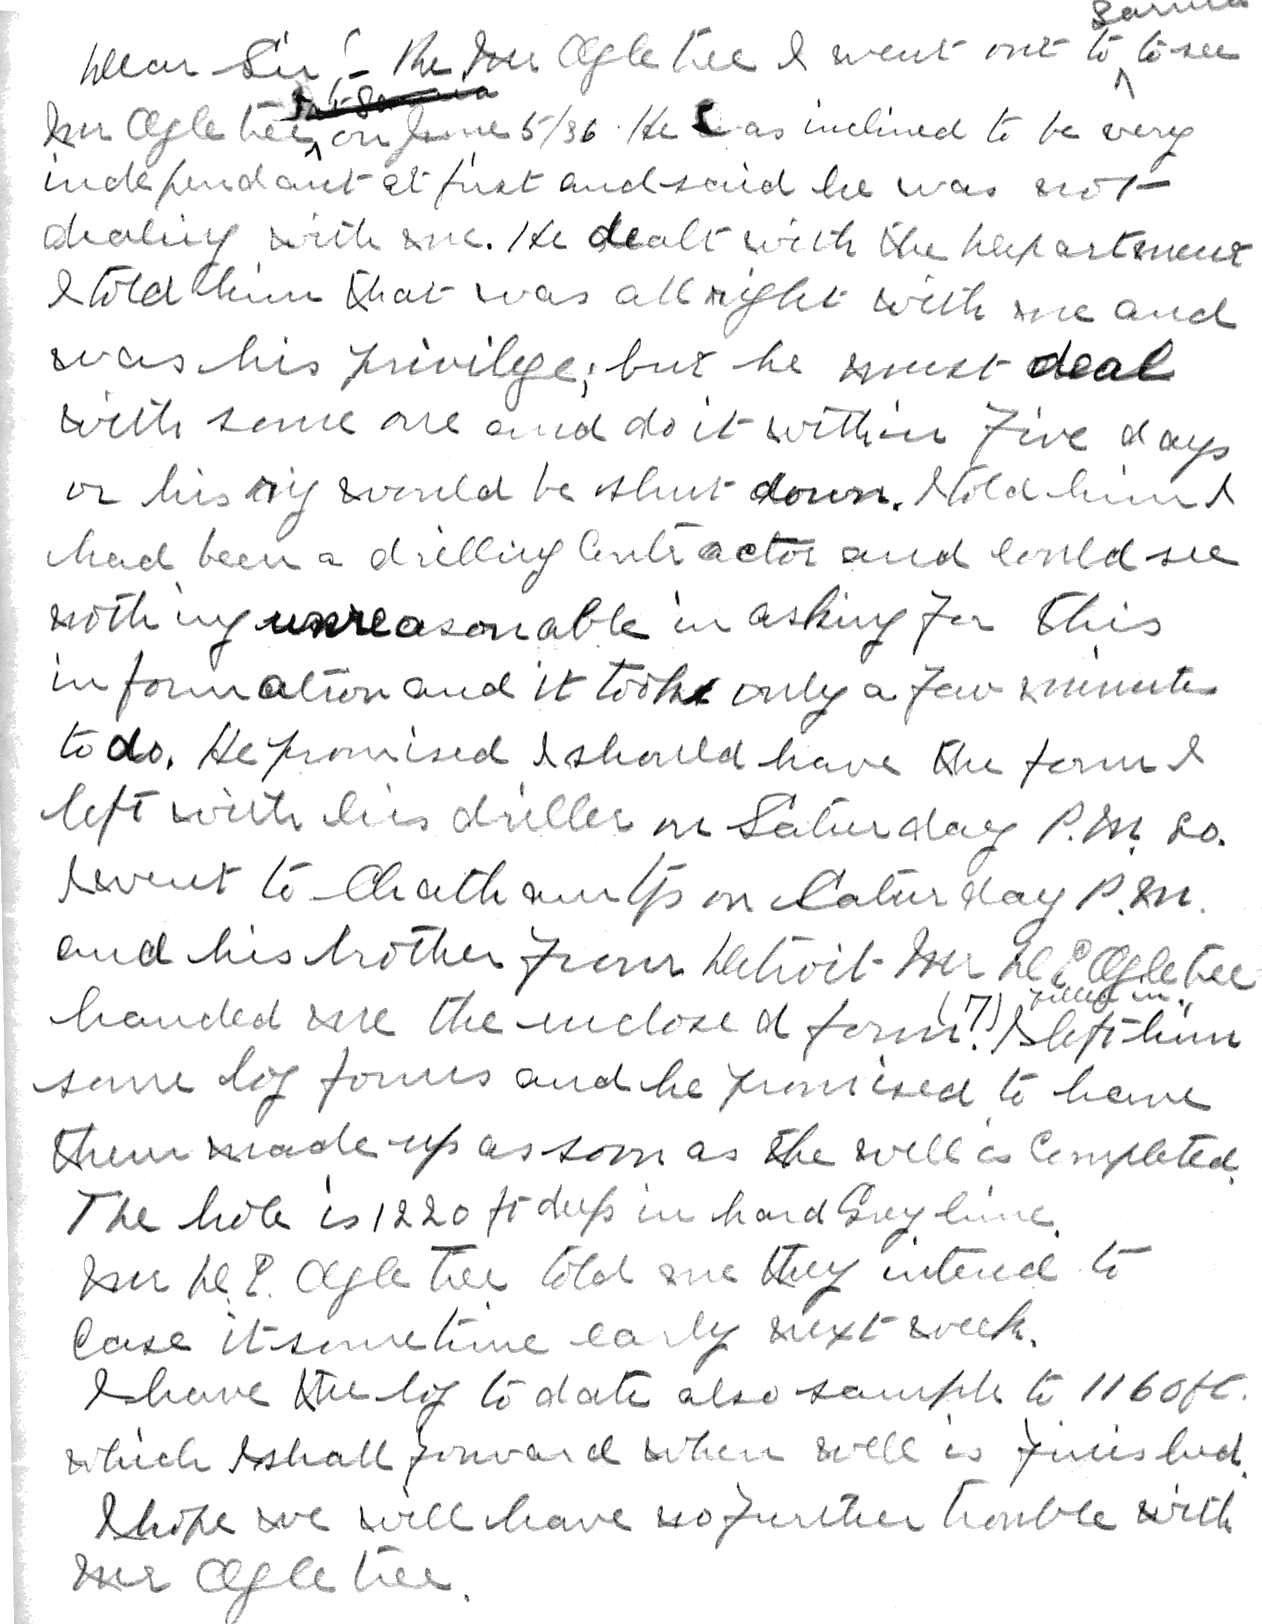 Sarnia
Dear Sir:- Re Mr Ogletree I went out to to see
at Sarnia
Mr Ogletree, on June 5/36. He was inclined to be very
independant at first and said he was not
dealing with me. He dealt with the Department
I told him that was all right with me and
was his privilege; but he must deal
with some one and do it within Five days
or his rig would be shut down. I told him I
had been a drilling Contractor and could see
nothing unreasonable in asking for this
information and it took only a few minutes
to do. He promised I should have the form I
left with his driller on Saturday P.M. so.
I went to Chatham Tp on Saturday P.M.
and his brother from Detroit Mr D.E. Ogletree
filled in.
handed me the enclosed form (7). I left him
some log forms and he promised to have
them made up as soon as the well is Completed.
The hole is 1220 ft deep in hard Grey lime.
Mr D.E. Ogletree told me they intend to
Case it sometime early next week.
I have the log to date also sample to 1160 ft.
which I shall forward when well is finished.
I hope we will have no further trouble with
Mr Ogletree.